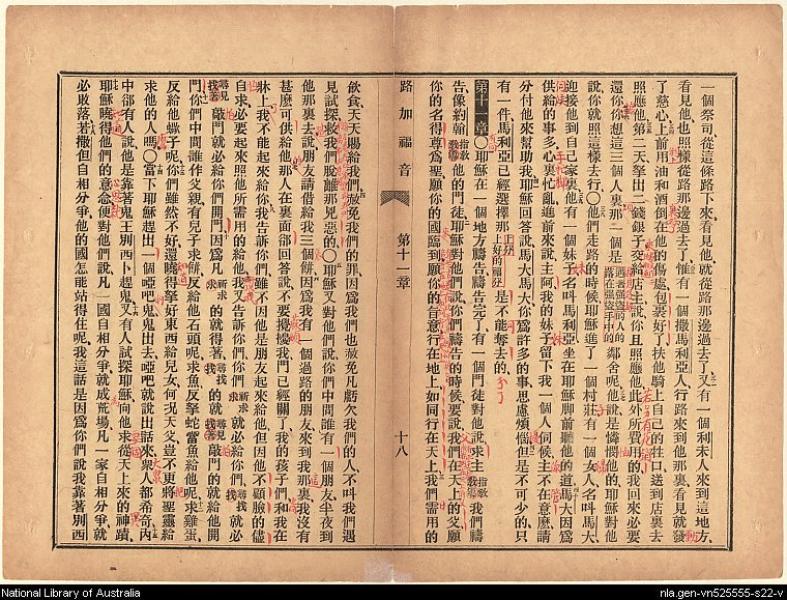 一個祭司、從這條路下來、看見他、就從路那邊過去了、又有一個利未人來到這地方、
看見他、也照樣從路那邊過去了、惟有一個撒馬利亞人、行路來到他那裏、看見就發
了慈心、上前用油和酒倒在他的傷處、包裹好了、扶他騎上自己的牲口、送到店裏去
照應他、第二天拏出二錢銀子、交給店主說、你且照應他、此外所費用的、我回來必要
還你、你想這三個人裏、那一個是遇着強盜的人的落在強盜手中的鄰舍呢、他說、是憐憫他的、耶穌對他
說、你就照這樣去行、〇他們走路的時候、耶穌進了一個村莊、有一個女人、名叫馬大、
迎接他到自己家裏、他有一個妹子、名叫馬利亞、坐在耶穌脚前聽他的道、馬大因爲
供給的事多、心裏忙亂、進前來說、主阿、我的妹子留下我一個人伺候、主不在意麽、請
分付他來幫助我、耶穌回答說、馬大、馬大、你爲許多的事思慮煩惱、但是不可少的、只
有一件、馬利亞已經選擇那上分上好的福分、是不能奪去的、
第十一章〇耶穌在一個地方禱告、禱告完了、有一個門徒對他說、求主指敎我們禱
告、像約翰指敎他的門徒、耶穌對他們說、你們禱告的時候、要說、我們在天上的父、願
你的名得尊爲聖、願你的國臨到、願你的旨意行在地上、如同行在天上、我們需用的
路加福音 第十一章 十八
飮食、天天賜給我們、赦免我們的罪、因爲我們也赦免凡虧欠我們的人、不叫我們遇
見試探、救我們脫離那兇惡的、〇耶穌又對他們說、你們中間誰有一個朋友、半夜到
他那裏去說、朋友、請借給我三個餠、因爲我有一個過路的朋友、來到我那裏、我沒有
甚麽可供給他、那人在裏面卻回答說、不要攪擾我、門已經關了、我的孩子們和我在
牀上、我不能起來給你、我告訴你們、雖不因他是朋友起來給他、但因他不顧臉的儘
自求、必要起來照他所需用的給他、我又告訴你們、你們祈求求就必給你們、尋找找就必
尋見找著敲門就必給你們開門、因爲凡祈求求的就得著、尋找找的就尋見找著敲門的就給他開
門、你們中間誰作父親、有兒子求餠、反給他石頭呢、求魚、反拏蛇當魚給他呢、求雞蛋、
反給他蠍子呢、你們雖然不好、還曉得拏好東西給兒女、何况天父、豈不更將聖靈給
求他的人嗎、〇當下耶穌趕出一個啞吧鬼、鬼出去、啞吧就說出話來、衆人都希奇、內
中卻有人說、他是靠著鬼王別西卜趕鬼、又有人試探耶穌、向他求從天上來的神蹟、
耶穌曉得他們的意念、便對他們說、凡一國自相分爭、就成荒塲、凡一家自相分爭、就
必敗落、若撒但自相分爭、他的國怎能站得住呢、我這話是因爲你們說我靠著別西
National Library of Australia
nla.gen-vn525555-s22-v